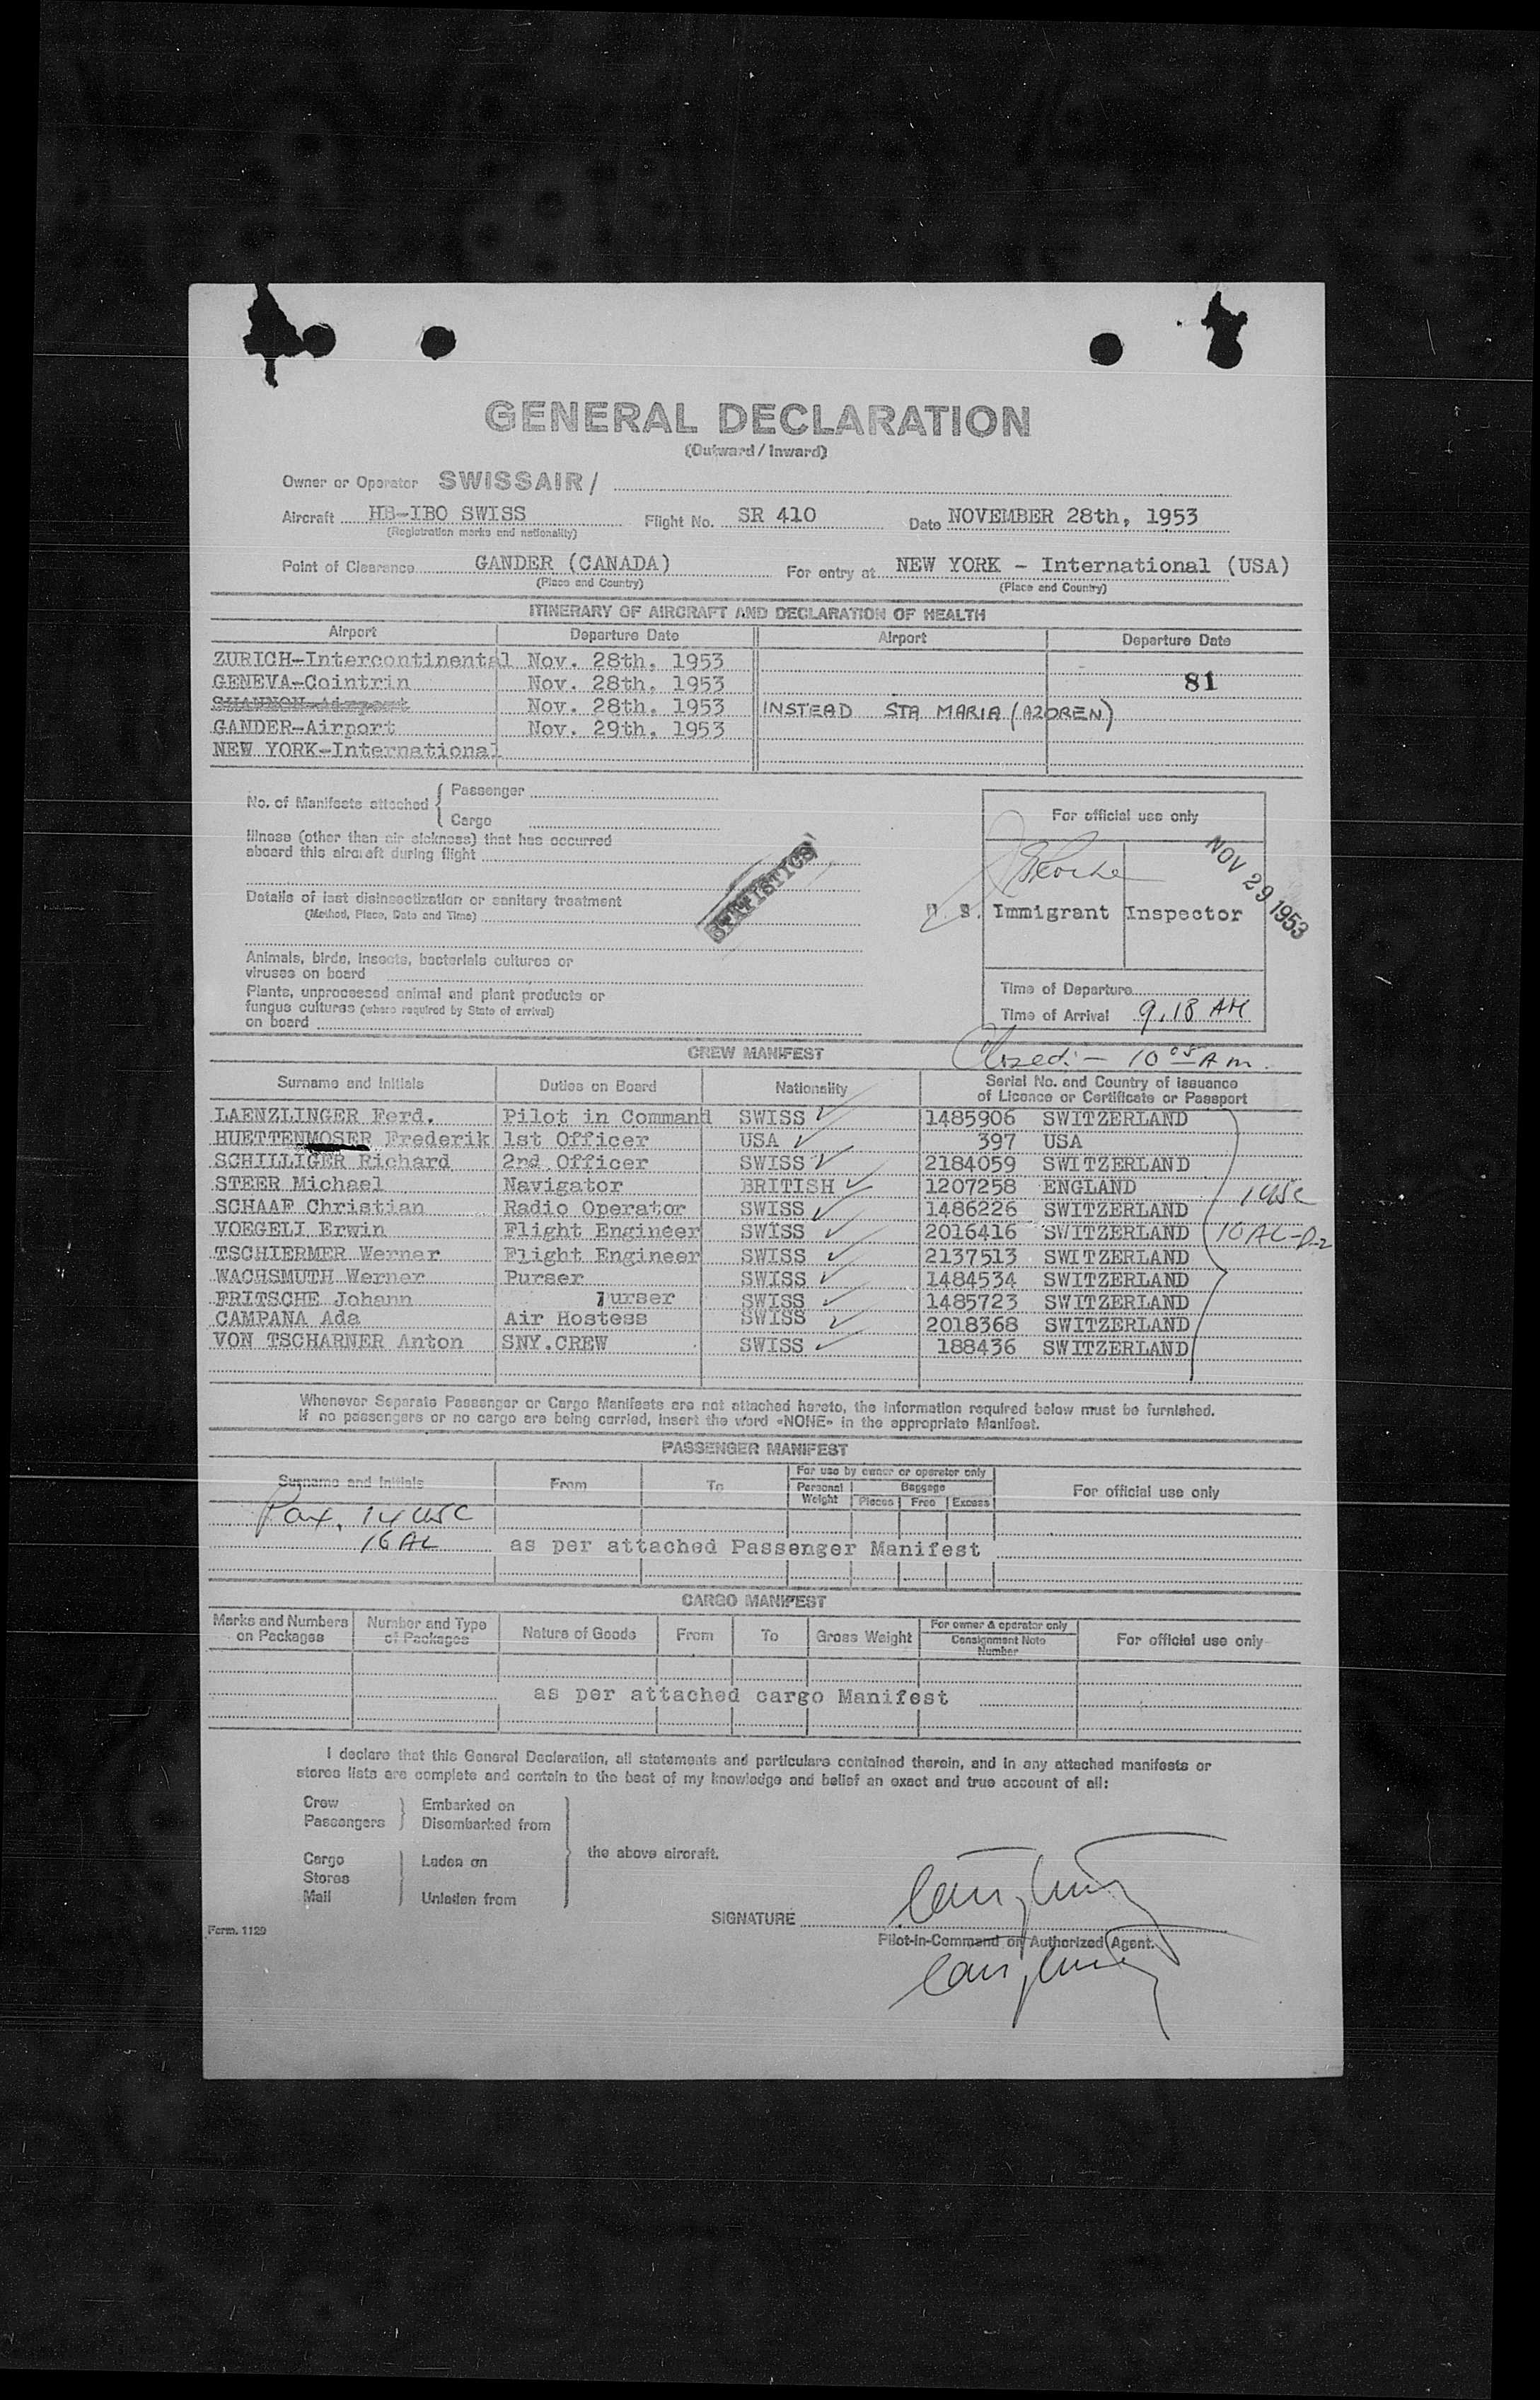 GENERAL DECLARATION
(Outward / Inward)
Owner or Operator SWISSAIR /
Aircraft HB-IBO SWISS Flight No. SR 410 Date NOVEMBER 28th, 1953
(Registration marks and nationality)
Point of Clearance GANDER (CANADA) For entry at NEW YORK - International (USA)
(Place and Country) (Place and Country)
ITINERARY OF AIRCRAFT AND DECLARATION OF HEALTH
Airport Departure Date Airport Departure Date
ZURICH-Intercontinental Nov. 28th, 1953
GENEVA-Cointrin Nov. 28th, 1953 81
SHANNON-Airport Nov. 28th, 1953 INSTEAD STA MARIA (AZOREN)
GANDER-Airport Nov. 29th, 1953
NEW YORK-International
No. of Manifests attached { Passenger
Cargo
Illness (other than air sickness) that has occurred
aboard this aircraft during flight
Details of last disinsectization or sanitary treatment
(Method, Place, Date and Time)
Animals, birds, insects, bacterials cultures or
viruses on board
Plants, unprocessed animal and plant products or
fungus cultures (where required by State of arrival)
on board
STATISTICS
For official use only
NOV 29 1953
U. S. Immigrant Inspector
Time of Departure
Time of Arrival 9.18 AM
Closed:- 10 05 AM.
CREW MANIFEST
Surname and Initials Duties on Board Nationality Serial No. and Country of Issuance
of Licence or Certificate or Passport
LAENZLINGER Ferd. Pilot in Command SWISS 1485906 SWITZERLAND
HUETTENMOSER Frederik 1st Officer USA 397 USA
SCHILLIGER Richard 2nd Officer SWISS 2184059 SWITZERLAND
STEER Michael Navigator BRITISH 1207258 ENGLAND
SCHAAF Christian Radio Operator SWISS 1486226 SWITZERLAND 1 USC
VOEGELI Erwin Flight Engineer SWISS 2016416 SWITZERLAND 10 AL-D-2
TSCHIERMER Werner Flight Engineer SWISS 2137513 SWITZERLAND
WACHSMUTH Werner Purser SWISS 1484534 SWITZERLAND
FRITSCHE Johann Purser SWISS 1485723 SWITZERLAND
CAMPANA Ada Air Hostess SWISS 2018368 SWITZERLAND
VON TSCHARNER Anton SNY.CREW SWISS 188436 SWITZERLAND
Whenever Separate Passenger or Cargo Manifests are not attached hereto, the information required below must be furnished.
If no passengers or no cargo are being carried, insert the word «NONE» in the appropriate Manifest.
PASSENGER MANIFEST
Surname and Initials From To For use by owner or operator only For official use only
Personal Weight Baggage
Pieces Free Excess
Pax. 14 USC
16 AL as per attached Passenger Manifest
CARGO MANIFEST
Marks and Numbers on Packages Number and Type of Packages Nature of Goods From To Gross Weight For owner & operator only Consignment Note Number For official use only
as per attached cargo Manifest
I declare that this General Declaration, all statements and particulars contained therein, and in any attached manifests or
stores lists are complete and contain to the best of my knowledge and belief an exact and true account of all:
Crew } Embarked on
Passengers } Disembarked from
the above aircraft.
Cargo Laden on
Stores
Mail Unladen from
SIGNATURE
Pilot-in-Command or Authorized Agent.
Form. 1129